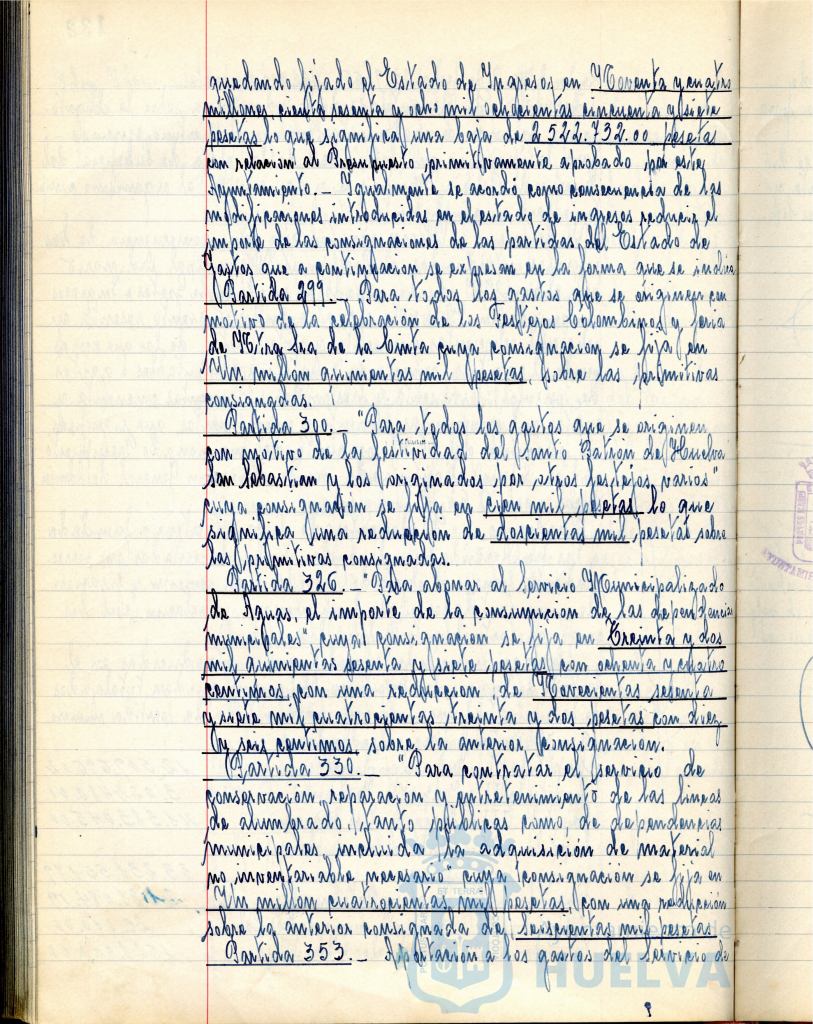 quedando fijado el Estado de Ingresos en Noventa y cuatro
millones, ciento sesenta y ocho mil ochocientas cincuenta y siete
pesetas lo que significa una baja de 2.522.732.00 pesetas
con relación al Presupuesto primitivamente aprobado por este
Ayuntamiento. — Igualmente se acordó como consecuencia de las
modificaciones introducidas en el estado de ingresos reducir el
importe de las consignaciones de las partidas del Estado de
Gastos que a continuacion se expresan en la forma que se indica
Partida 299. — Para todos los gastos que se originen con
motivo de la celebración de los Festejos Colombinos y feria
de Ntra Sra de la Cinta cuya consignacion se fija en
Un millón quinientas mil pesetas, sobre las primitivas
consignadas.
Partida 300. — "Para todos los gastos que se originen
con motivo de la festividad del Santo Patrón de Huelva
San Sebastian y los originados por otros festejos varios"
cuya consignación se fija en cien mil pesetas lo que
significa una reducción de doscientas mil pesetas sobre
las primitivas consignadas.
Partida 326. — "Para abonar al Servicio Municipalizado
de Aguas, el importe de la consumicion de las dependencias
municipales" cuya consignacion se fija en Treinta y dos
mil quinientas sesenta y siete pesetas con ochenta y cuatro
centimos con una reduccion de Novecientas sesenta
y siete mil cuatrocientas treinta y dos pesetas con diez
y seis centimos sobre la anterior consignación.
Partida 330. — "Para contratar el servicio de
conservación, reparacion y entretenimiento de las lineas
de alumbrado, tanto publicas como, de dependencias
municipales incluida la adquisición de material
no inventariable necesario" cuya consignacion se fija en
Un millón cuatrocientas mil pesetas, con una reducción
sobre la anterior consignada de seiscientas mil pesetas
Partida 353. — Aportacion a los gastos del servicio de
HUELVA